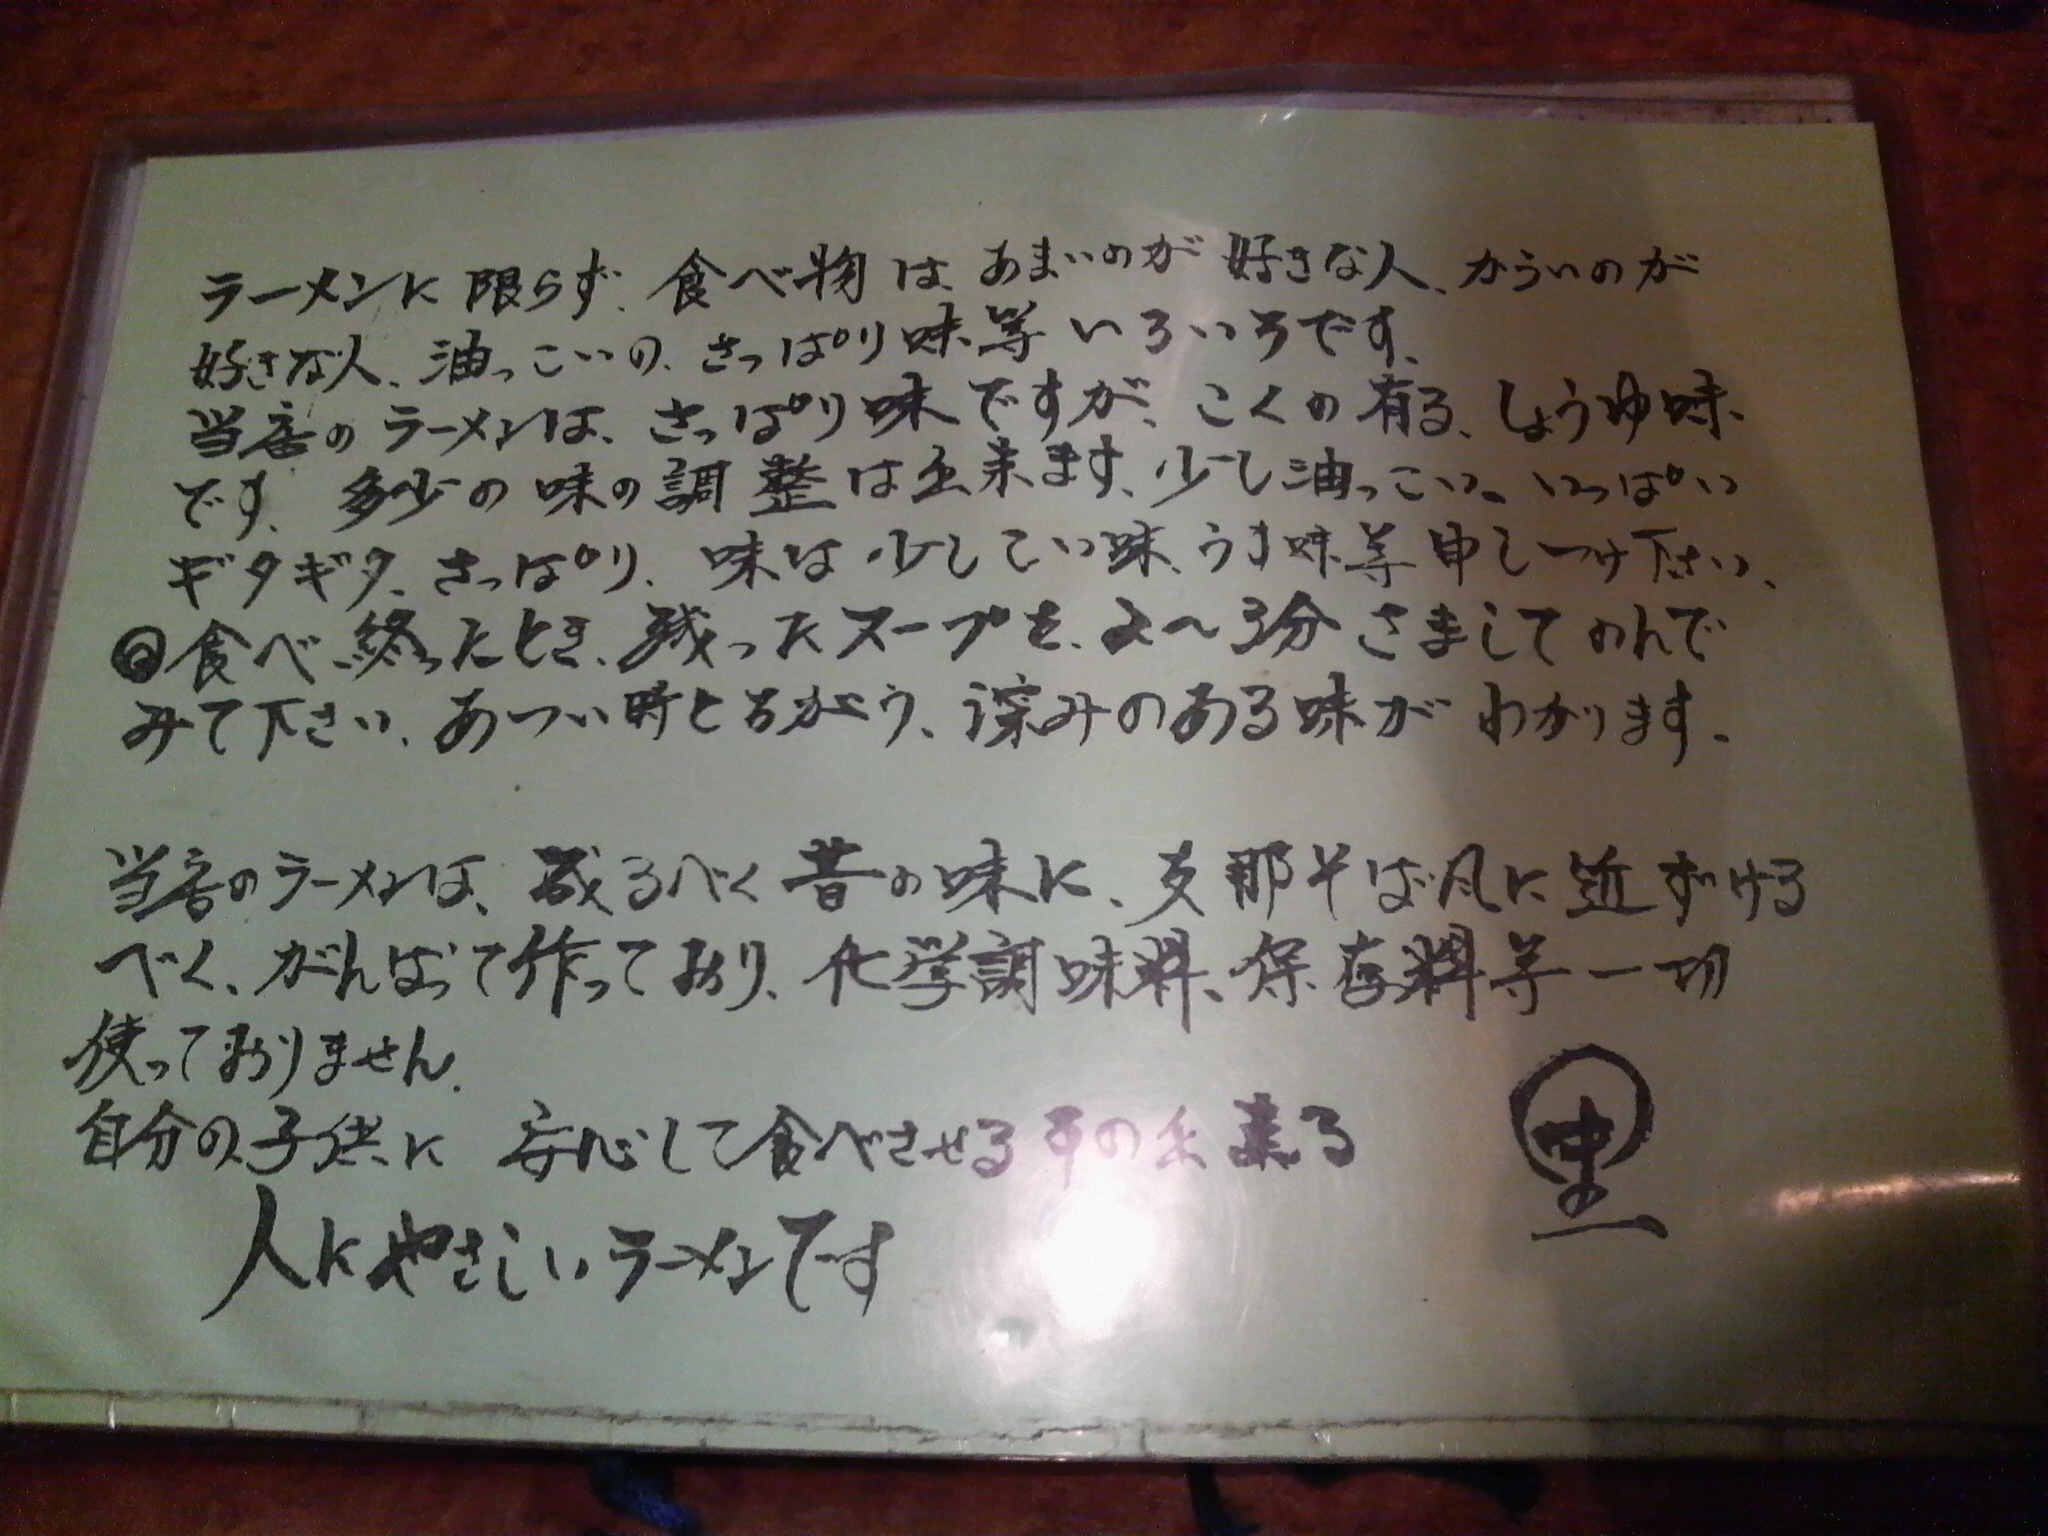 ラーメンに限らず、食べ物は、あまいのが好きな人、からいのが
好きな人、油っこいの、さっぱり味等いろいろです。
当店のラーメンは、さっぱり味ですが、こくの有る、しょうゆ味
です。多少の味の調整は出来ます、少し油っこい、いっぱい
ギタギタ、さっぱり、味は少しこい味、うす味等申しつけ下さい、
◎食べ終ったとき、残ったスープを、2〜3分さましてのんで
みて下さい、あつい時とちがう、深みのある味がわかります。
当店のラーメンは、成るべく昔の味に、支那そば風に近ずける
べく、がんばって作っており、化学調味料、保存料等一切
使っておりません。
自分の子供に安心して食べさせる事の出来る
人にやさしいラーメンです